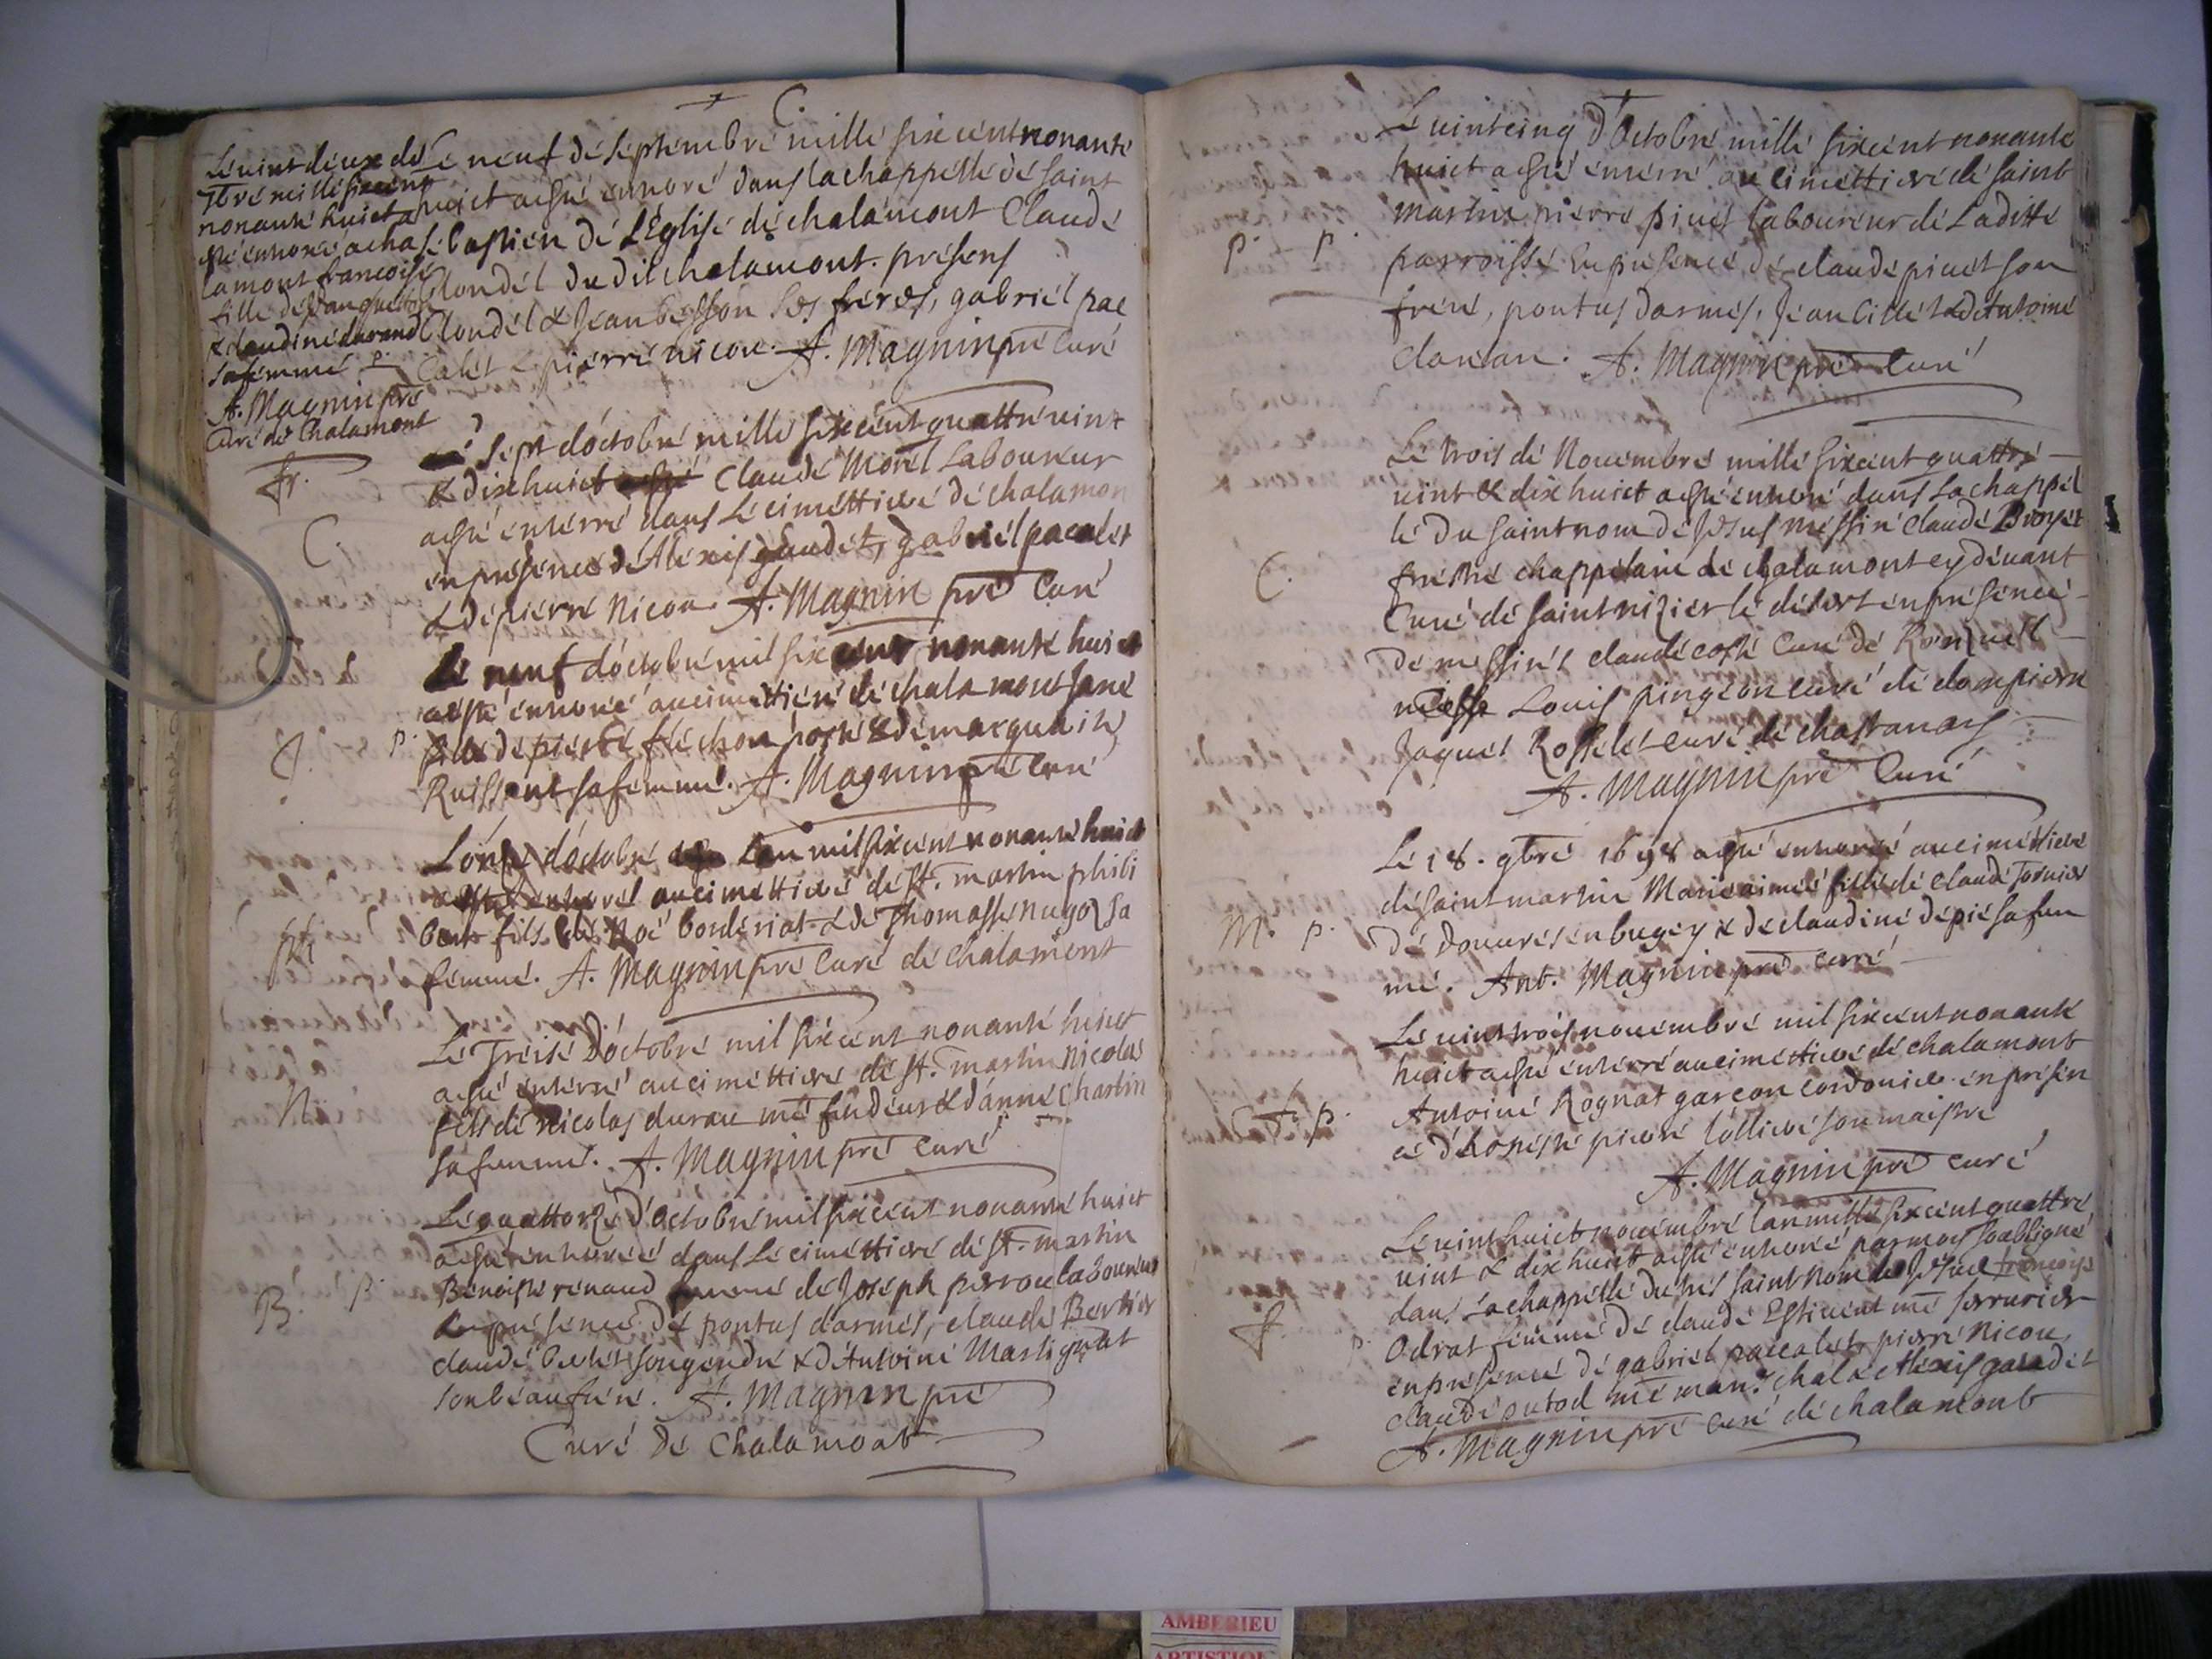 C.
Le neuf de septembre mille six cent nonante
huict a esté enterré dans la chappelle de saint
sebastien de l'Eglise de chalamont Claude
Blondel dudit chalamont. presens
Blondel & Jean besson ses freres, gabriel pac
calet & pierre nicou. A. Magnin pre Curé
Le vint deux de
7bre mille six cent
nonante huict a
esté enterré a cha
lamont francoise
fille de
& claudine durand
sa femme
A. Magnin pre
Curé de Chalamont
fr.
sept d'octobre mille six cent quattre vint
& dix huict Claude Morel Laboureur
a esté enterré dans Le cimettiere de chalamon
en presence d'Alexis gaudet, gabriel pacalet
& de pierre Nicou. A. Magnin pre Curé
C.
Le neuf d'octobre mil six cent nonante huict
a esté enterré au cimettiere de chalamont Jane
fille de pierre flechon & de
Ruissent sa femme. A. Magnin pre Curé
J. p.
L'onze d'octobre L'an mil six cent nonante huict
a esté enterré au cimettiere de st. martin phili
bert fils de Noé borderiat & de Thomasse nugoz sa
femme. A. Magnin pre Curé de Chalamont
ph
Le Treise d'octobre mil six cent nonante huict
a esté enterré au cimettiere de st. martin Nicolas
fils de Nicolas durau me & d'anne Charlin
sa femme. A. Magnin pre Curé
N.
Le quattorze d'octobre mil six cent nonante huict
a esté enterreé dans Le cimettiere de st. martin
Benoiste renaud femme de Joseph perrou laboureur
En presence de pontus darmes, claude Bertier
claude son gendre & d'Antoine Martignat
son beaufrere. A. Magnin pre
Curé de Chalamont
B. p.
Le vint cinq d'Octobre mille six cent nonante
huict a esté enterré au cimettiere de saint
martin pierre pinet laboureur de Laditte
parroisse En presence de claude pinet son
frere, pontus darmes, Jean & d'Antoine
A. Magnin pre Curé
p. p.
Le trois de Novembre mille six cent quattre
vint & dix huict a esté enterré dans La chappel
le du saint nom de Jesus messire Claude Broyer
prestre chappelain de chalamont cy devant
Curé de saint nizier le désert en presence
de messires claude Curé de Ronzuel
Louis pingeon curé de dompierre
Jaques Rosselet curé de chastanay
A. Magnin pre Curé
C.
Le 18. 9bre 1698 a esté enterré au cimettiere
de saint martin Marie aimeé fille de claude Tornier
de douvres en bugey & de claudine depié sa fem
me. Ant. Magnin pre Curé
M. p.
Le vint trois novembre mil six cent nonante
huict a esté enterré au cimettiere de chalamont
Antoine Rognat garcon cordonier en presen
ce d'honeste pierre lollier son maistre
A. Magnin pre curé
A. p.
Le vint huict novembre l'an mille six cent quattre
vint & dix huict a esté enterré par moy soubsigné
dans La chappelle du tres saint Nom de Jesus francoise
Odrat femme de claude Estienent me serrurier
en presence de gabriel paccalet, pierre Nicou
claude outod me maréchal & Alexis gaudet
A. Magnin pre Curé de chalamont
f. p.
AMBERIEU